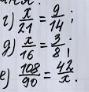 г) x/21 = 9/14;
д) x/16 = 3/8;
е) 108/90 = 42/x.